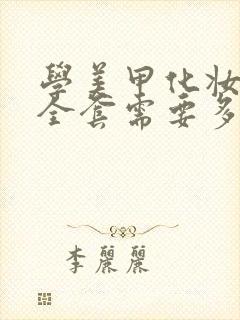 學美甲化妝
全套需要多
李麗麗